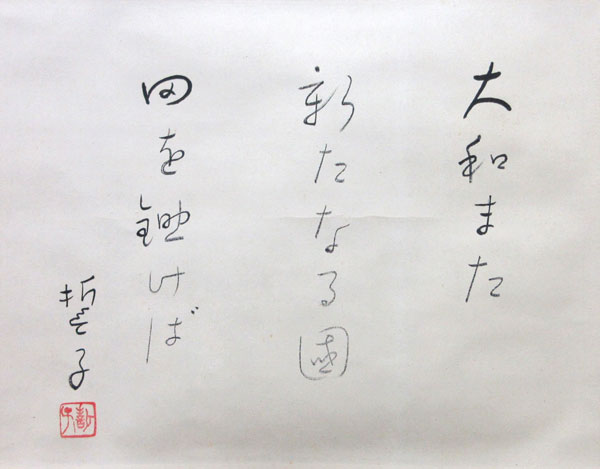 大和また
新たなる國
田を鋤けば
誓子
誓子